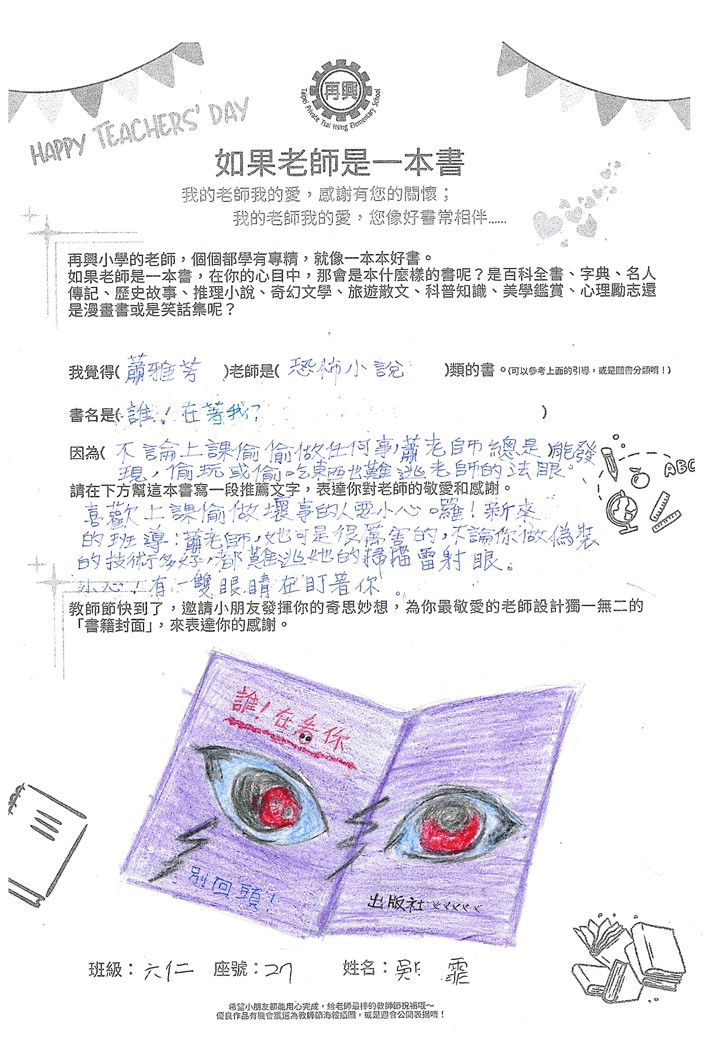 HAPPY TEACHERS' DAY
再興
Taipei Private Tsai Hsing Elementary School
如果老師是一本書
我的老師我的愛，感謝有您的關懷；
我的老師我的愛，您像好書常相伴......
再興小學的老師，個個都學有專精，就像一本本好書。
如果老師是一本書，在你的心目中，那會是本什麼樣的書呢？是百科全書、字典、名人
傳記、歷史故事、推理小說、奇幻文學、旅遊散文、科普知識、美學鑑賞、心理勵志還
是漫畫書或是笑話集呢？
我覺得( 蕭雅芳 )老師是( 恐怖小說 )類的書。(可以參考上面的引導，或是圖書分類唷！)
書名是( 誰！在看我？ )
因為( 不論上課偷偷做任何事，蕭老師總是能發
現，偷玩或偷吃東西也難逃老師的法眼。
請在下方幫這本書寫一段推薦文字，表達你對老師的敬愛和感謝。
喜歡上課偷做壞事的人要小心囉！新來
的班導：蕭老師，她可是很厲害的，不論你做偽裝
的技術多好，都難逃她的掃描雷射眼。
小心！有一雙眼睛在盯著你。
ABC
教師節快到了，邀請小朋友發揮你的奇思妙想，為你最敬愛的老師設計獨一無二的
「書籍封面」，來表達你的感謝。
誰！在看你
別回頭！
出版社：xxxxx
班級：六仁 座號：27 姓名：鄭 霏
希望小朋友都能用心完成，給老師最棒的教師節祝福哦～
優良作品有機會獲選為教師節海報插圖，或是週會公開表揚唷！